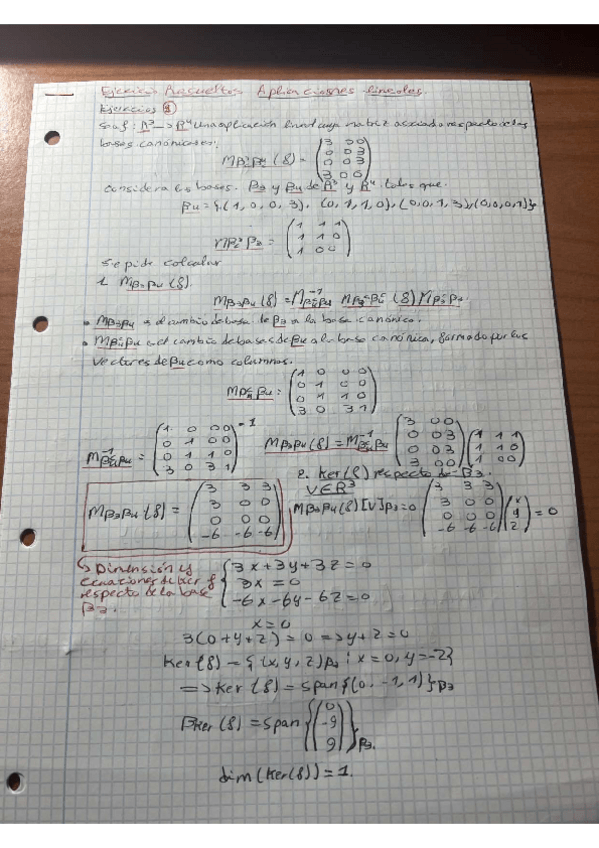 Ejercicios Resueltos Aplicaciones lineales.
Ejercicio 1
Sea f: R³ → R⁴ una aplicación lineal cuya matriz asociada respecto de las
bases canónicas:
MβcβC4 (f) = (3 0 0 / 0 0 3 / 0 0 3 / 3 0 0)
Considera las bases. β3 y β4 de R³ y R⁴. tales que.
β4 = {(1, 0, 0, 3), (0, 1, 1, 0), (0, 0, 1, 3), (0, 0, 0, 1)}
Mβc³β3 = (1 1 1 / 1 1 0 / 1 0 0)
Se pide calcular
1. Mβ3β4 (f).
Mβ3β4 (f) = M⁻¹βc4β4 Mβ3cβ4c (f) Mβ3cβ3.
• Mβ3β4 es el cambio de base de β3 a la base canónica.
• Mβc4β4 es el cambio de bases de β4 a la base canónica, formado por los
vectores de β4 como columnas.
Mβc4β4 = (1 0 0 0 / 0 1 0 0 / 0 1 1 0 / 3 0 3 1)
M⁻¹βc4β4 = (1 0 0 0 / 0 1 0 0 / 0 1 1 0 / 3 0 3 1)⁻¹
Mβ3β4 (f) = M⁻¹βc4β4 (3 0 0 / 0 0 3 / 0 0 3 / 3 0 0) (1 1 1 / 1 1 0 / 1 0 0)
Mβ3β4 (f) = (3 3 3 / 3 0 0 / 0 0 0 / -6 -6 -6)
2. Ker(f) respecto de β3.
V ∈ R³
Mβ3β4 (f) [V]β3 = 0 (3 3 3 / 3 0 0 / 0 0 0 / -6 -6 -6) (x / y / z) = 0
↳ Dimensión y
ecuaciones de Ker f
respecto de la base
β3.
{3x + 3y + 3z = 0
3x = 0
-6x - 6y - 6z = 0
x = 0
3(0 + y + z) = 0 ⇒ y + z = 0
Ker(f) = {(x, y, z)β3 : x = 0, y = -z}
⇒ Ker (f) = span {(0, -1, 1)}β3
βKer (f) = span {(0 / -9 / 9)}β3.
dim (Ker(f)) = 1.